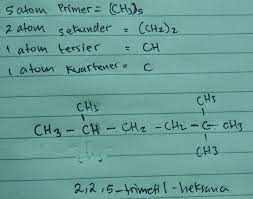 5 atom Primer = (CH3)5
2 atom sekunder = (CH2)2
1 atom tersier = CH
1 atom kuartener = C
CH3 CH3
CH3 - CH - CH2 - CH2 - C - CH3
CH3
2,2,5-trimetil-heksana